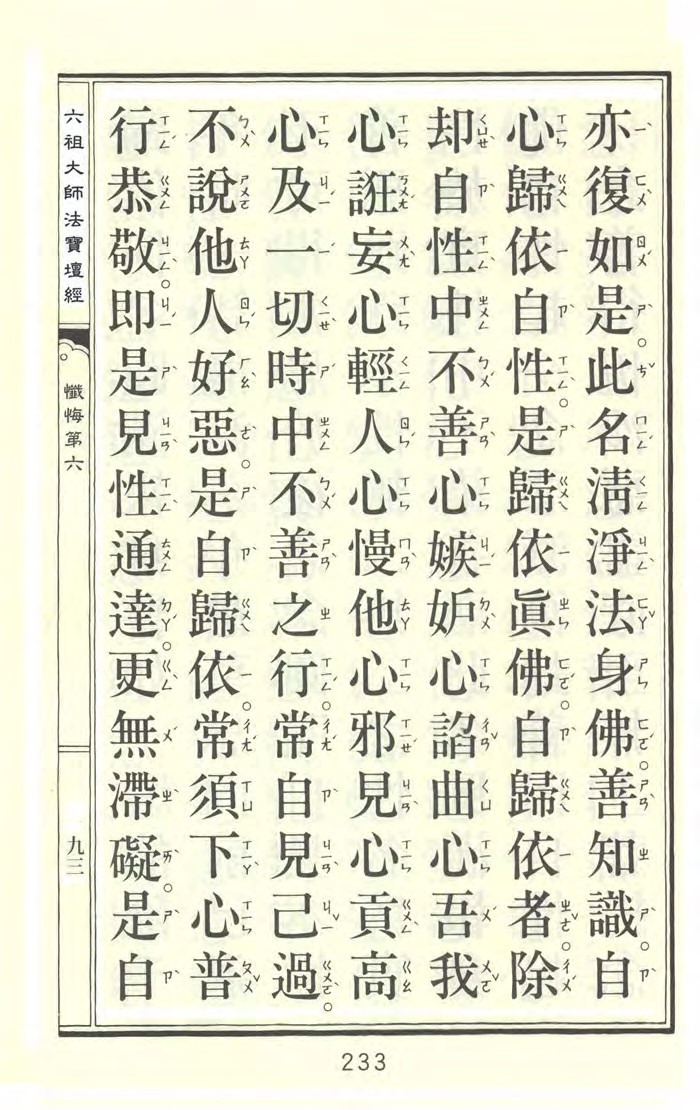 亦復如是。此名清淨法身佛。善知識。自
心歸依自性。是歸依眞佛。自歸依者。除
却自性中不善心嫉妒心諂曲心吾我
心誑妄心輕人心慢他心邪見心貢高
心及一切時中不善之行。常自見己過。
不說他人好惡。是自歸依。常須下心普
行恭敬。即是見性通達。更無滯礙。是自
六祖大師法寶壇經
懺悔第六
九三
233